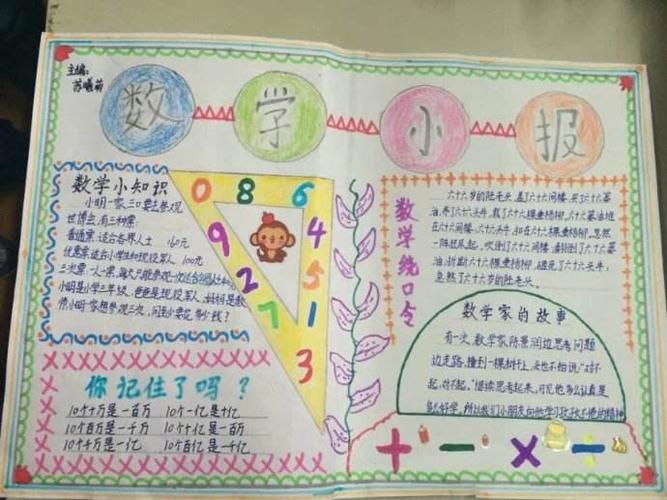 主编:
苏曦菊
数学小报
数学小知识
小明一家三口要去参观
世博会,有三种票:
普通票:适合各界人士 160元
优惠票:适合小学生和现役军人 100元
三次票:一人一票,每天只能参观一次
小明是小学三年级,爸爸是现役军人,妈妈是教
师,小明一家想参观三次,问至少要花多少钱?
0 8 6
9 4
2 5
7 1
3
你记住了吗?
10个十万是一百万 10个一亿是十亿
10个百万是一千万 10个十亿是一百亿
10个千万是一亿 10个百亿是一千亿
数学绕口令
六十六岁的陆老头,盖了六十六间楼,买了六十六篓
油,养了六十六头牛,栽了六十六棵垂杨柳。六十六篓油堆
在六十六间楼,六十六头牛,扣在六十六棵垂杨柳。忽然
一阵狂风起,吹倒了六十六间楼,翻倒了六十六篓
油,折断六十六棵垂杨柳,砸死了六十六头牛,
急煞了六十六岁的陆老头。
数学家的故事
有一次,数学家陈景润边思考问题
边走路,撞到一棵树上,头也不抬说:"对不
起,对不起。"继续思考起来,可见他多么认真是
多么好学,所以我们小朋友向他学习孜孜不倦的精神
+ − × ÷